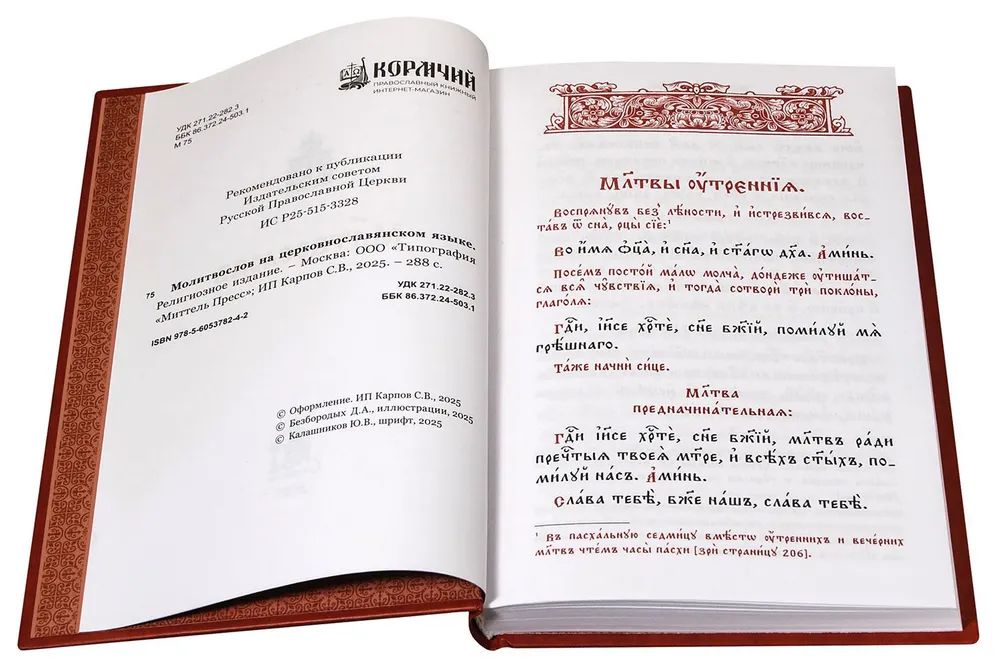 КОРМЧИЙ
ПРАВОСЛАВНЫЙ КНИЖНЫЙ
ИНТЕРНЕТ-МАГАЗИН
УДК 271.22-282.3
ББК 86.372.24-503.1
М 75
Рекомендовано к публикации
Издательским советом
Русской Православной Церкви
ИС Р25-515-3328
Молитвослов на церковнославянском языке.
75 Религиозное издание. – Москва: ООО «Типография
«Миттель Пресс»; ИП Карпов С.В., 2025. – 288 с.
УДК 271.22-282.3
ББК 86.372.24-503.1
ISBN 978-5-6053782-4-2
© Оформление. ИП Карпов С.В., 2025
© Безбородых Д.А., иллюстрации, 2025
© Калашников Ю.В., шрифт, 2025
Мл҃твы ᲂу҆́трєннїѧ.
Воспрѧ́нꙋвъ без̾ лѣ́ности, и҆ и҆стрезви́всѧ, вос-
та́въ ѿ сна̀, рцы̀ сїѐ:¹
Во и҆́мѧ ѻ҆ц҃а̀, и҆ сн҃а, и҆ ст҃а́гѡ дх҃а. А҆ми́нь.
Посе́мъ посто́й ма́лѡ мо́лча, до́ндеже ᲂу҆тиша́т-
сѧ всѧ̑ чꙋ̑вствїѧ, и҆ тогда̀ сотворѝ трѝ покло́ны,
глаго́лѧ:
Гдⷭ҇и, і҆и҃се хрⷭ҇тѐ, сн҃е бж҃їй, поми́лꙋй мѧ̀
грѣ́шнаго.
Та́же начнѝ си́це.
Мл҃тва
предначина́тельнаѧ:
Гдⷭ҇и і҆и҃се хрⷭ҇тѐ, сн҃е бж҃їй, мл҃твъ ра́ди
пречⷭ҇тыѧ твоеѧ̀ мт҃ре, и҆ всѣ́хъ ст҃ы́хъ, по-
ми́лꙋй на́съ. А҆ми́нь.
Сла́ва тебѣ̀, бж҃е на́шъ, сла́ва тебѣ̀.
¹ Въ пасха́льнꙋю седми́цꙋ вмѣ́стѡ ᲂу҆́тренних и вече́рних
мл҃твъ чте́мъ часы̀ па́схи [зрѝ страни́цꙋ 206].